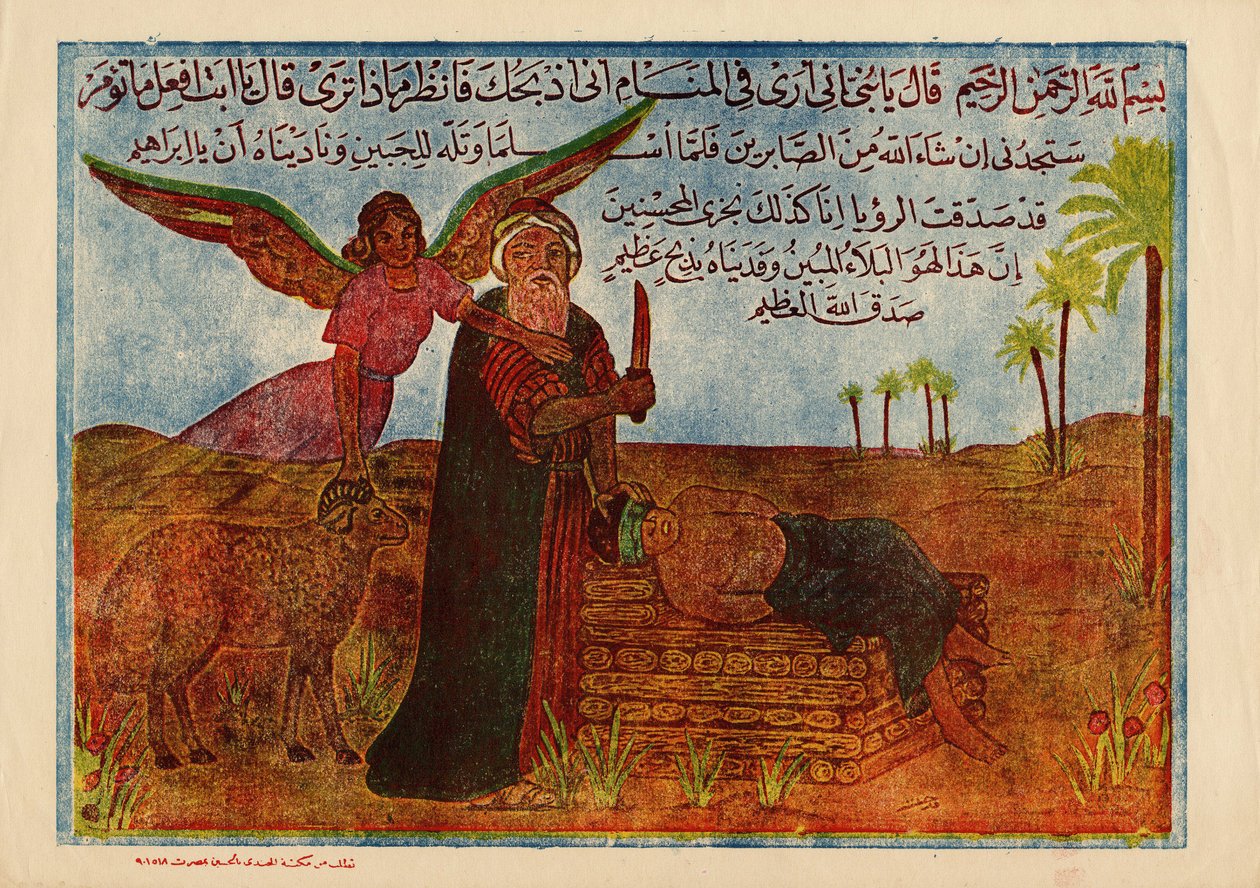 بسم الله الرحمن الرحيم قال يا بني اني أرى في المنام اني أذبحك فانظر ماذا ترى قال يا ابت افعل ما تؤمر
ستجدني إن شاء الله من الصابرين فلما أسلما وتله للجبين وناديناه أن يا ابراهيم
قد صدقت الرؤيا إنا كذلك نجزى المحسنين
إن هذا لهو البلاء المبين وفديناه بذبح عظيم
صدق الله العظيم
تطلب من مكتبة الجندى بالحسين بمصر ت ٩٠١٥١٨